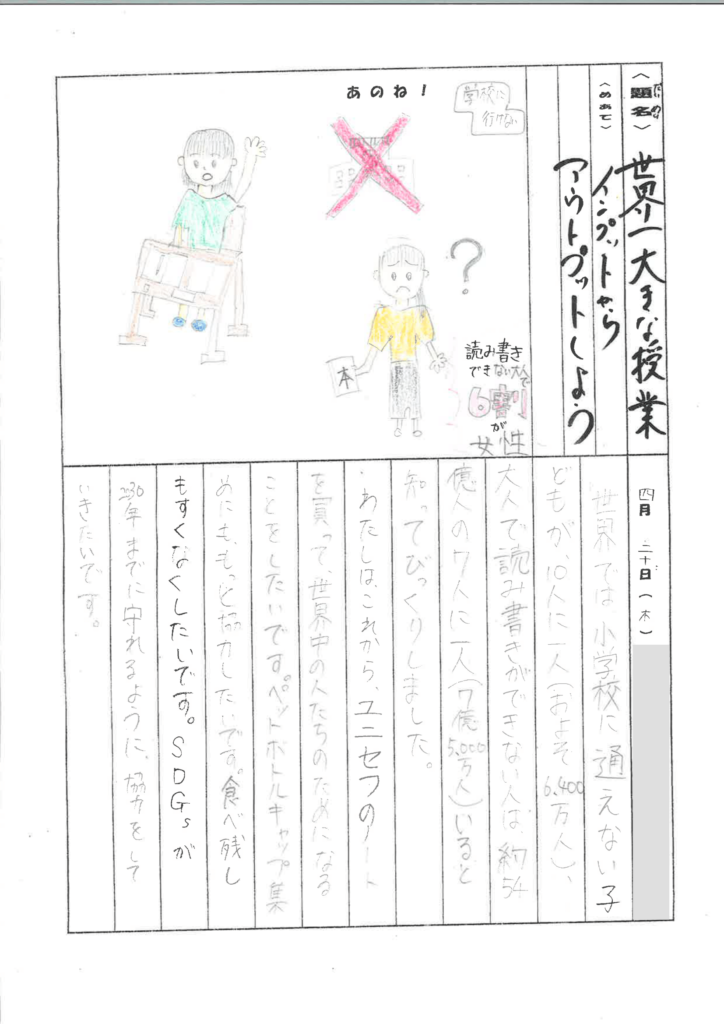 〈題名〉 世界一大きな授業
〈めあて〉 インプットから
アウトプットしよう
あのね！
学校に
行けない
本
?
読み書き
できない大人で
6割り
が
女性
四月 二十日（木）
世界では小学校に通えない子
どもが、10人に一人（およそ6.400万人）、
大人で読み書きができない人は、約54
億人の7人に一人（7億5.000万人）いると
知ってびっくりしました。
わたしは、これから、ユニセフのノート
を買って、世界中の人たちのためになる
ことをしたいです。ペットボトルキャップ集
めにも、もっと協力したいです。食べ残し
もすくなくしたいです。SDGsが
2030年までに守れるように、協力をして
いきたいです。